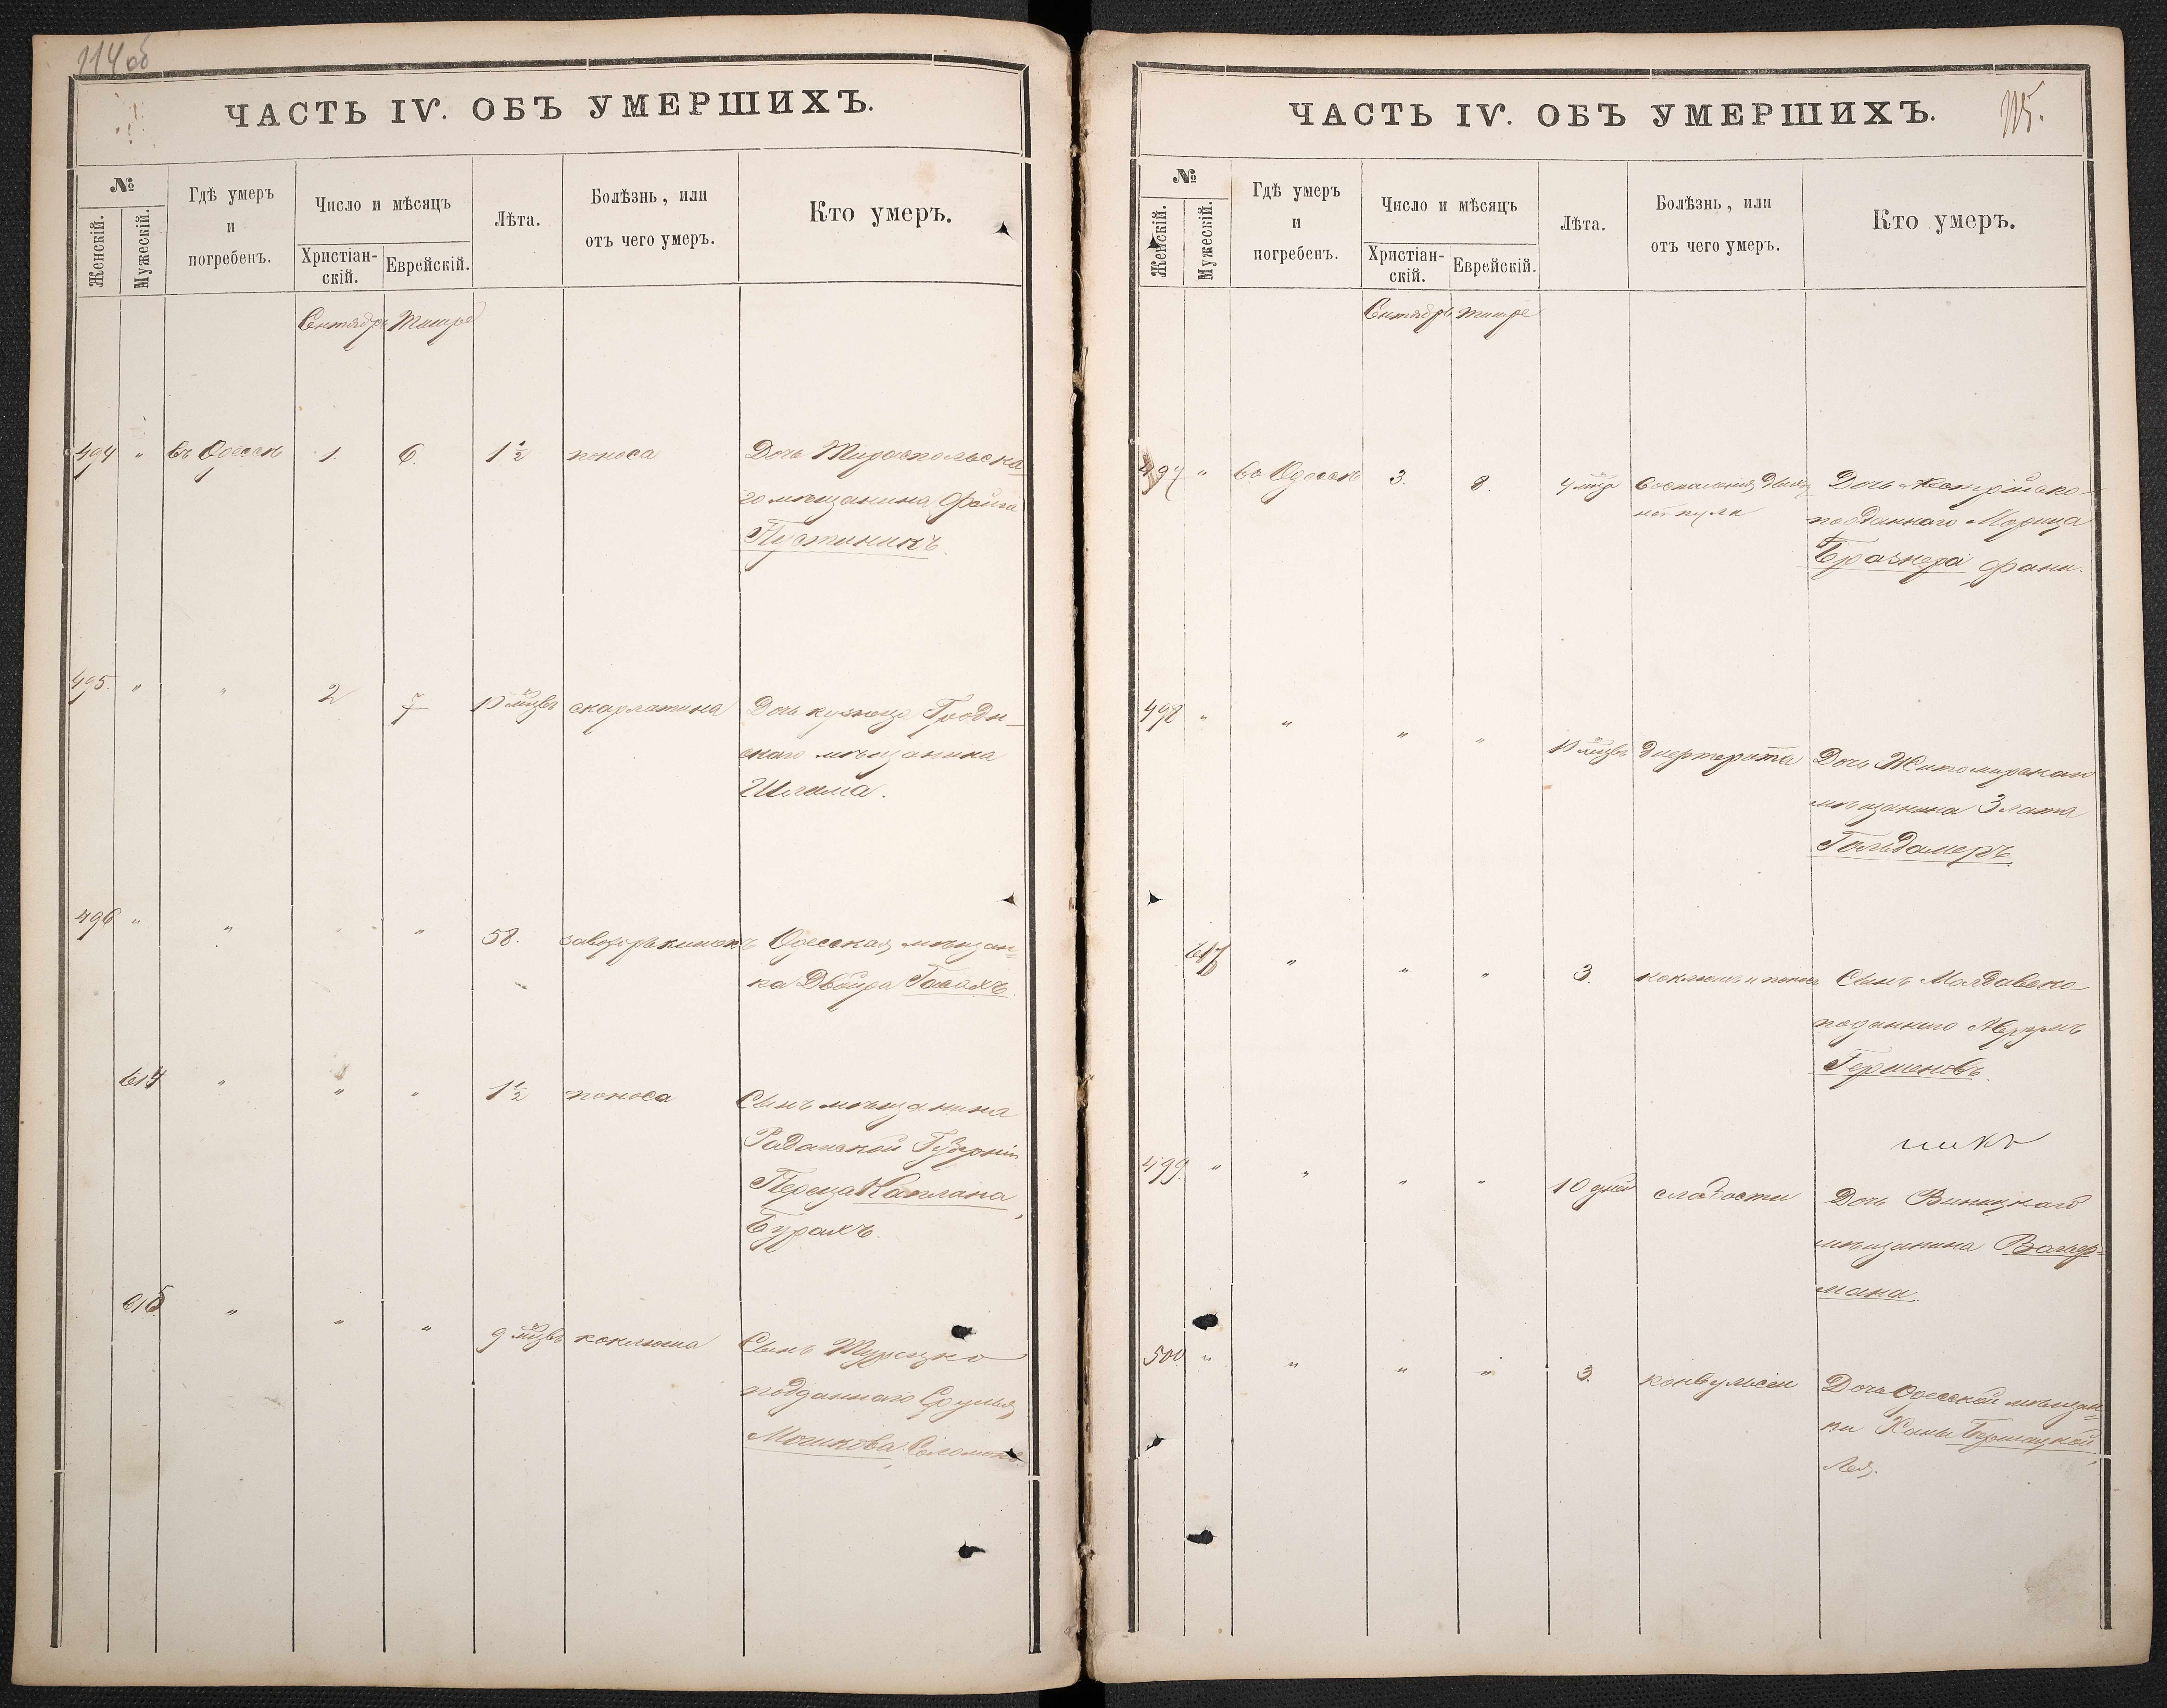 114 об
ЧАСТЬ IV. ОБЪ УМЕРШИХЪ.
№
Женскій.
Мужескій.
Гдѣ умеръ
и
погребенъ.
Число и мѣсяцъ
Христіан-
скій.
Еврейскій.
Лѣта.
Болѣзнь, или
отъ чего умеръ.
Кто умеръ.
Сентябрь Тишре
494 " Въ Одессѣ 1 6. 1½ поноса Дочь Тираспольска
го мѣщанина Фейга
Пустыникъ.
495. " " 2 7 10 мцвъ скарлатина Дочь кузнеца Гродн-
скаго мѣщанина
496 " " " " 58. Одесская мѣщан=
ка Двойра
614 " " " 1½ поноса Сынъ мѣщанина
Радомской Губерніи
Переца Каплана,
Бурахъ.
615 " " " 9 мцвъ коклюша Сынъ Турецко
подданнаго Сруля
Мошкова, Соломонъ
115.
ЧАСТЬ IV. ОБЪ УМЕРШИХЪ.
№
Женскій.
Мужескій.
Гдѣ умеръ
и
погребенъ.
Число и мѣсяцъ
Христіан-
скій.
Еврейскій.
Лѣта.
Болѣзнь, или
отъ чего умеръ.
Кто умеръ.
Сентябрь Тишре
497 " Въ Одессѣ 3. 8. Воспаленія Дочь Австрійско-
подданнаго Морица
Бразнера Фани.
498 " " " " 10 мцвъ Дифтерита Дочь Житомирскаго
мѣщанина Злата
Гольдамеръ.
617 " " " 3. коклюшъ и поносъ Сынъ Молдавско-
поданнаго
Гершеновъ.
499 " " " " 10 дней слабости Дочь Виницкаго
мѣщанина Вальдер=
мана.
500 " " " " 3. конвульсіи Дочь Одесской мѣщан=
ки Ханы Бершацкой,
Лея.